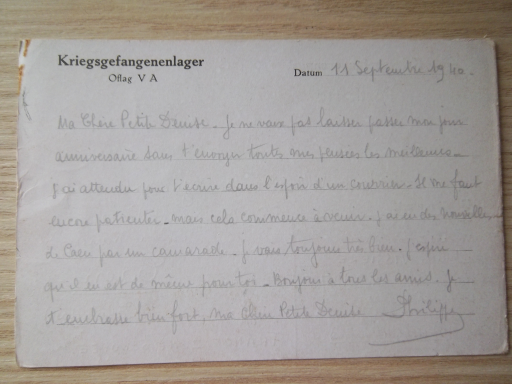 Kriegsgefangenenlager
Oflag V A
Datum 11 Septembre 1940.
Ma Chère Petite Denise - Je ne veux pas laisser passer mon jour
anniversaire sans t'envoyer toutes mes pensées les meilleures -
J'ai attendu pour t'écrire dans l'espoir d'un courrier - Il me faut
encore patienter - mais cela commence à venir - j'ai eu des nouvelles
de Caen par un camarade - je vais toujours très bien - j'espère
qu'il en est de même pour toi - Bonjour à tous les amis - Je
t'embrasse bien fort, ma Chère Petite Denise Philippe